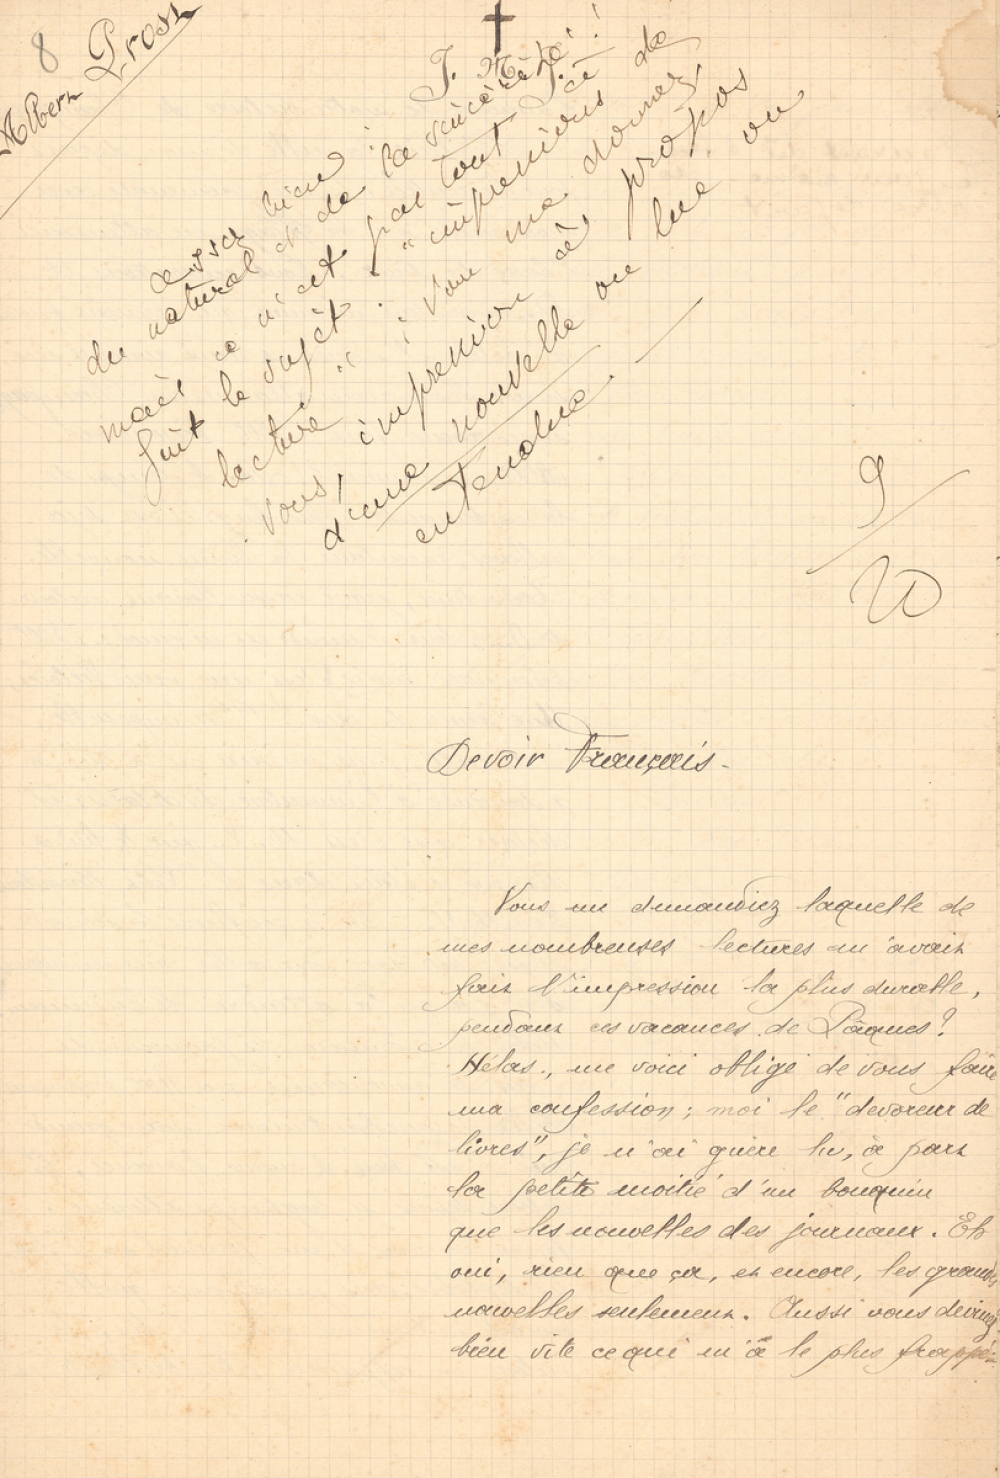 8
Albert Prost
J. M. J.
assez bien :
du naturel et de la sincérité !
mais ce n'est pas tout à
fait le sujet : "impressions de
lecture" ; vous me donnez,
vous, impression à propos
d'une nouvelle lue ou
entendue.
9/20
Devoir Français.
Vous me demandiez laquelle de
mes nombreuses lectures m'avait
fait l'impression la plus durable,
pendant ces vacances de Pâques ?
Hélas, me voici obligé de vous faire
ma confession ; moi le "devoreur de
livres", je n'ai guère lu, à part
la petite moitié d'un bouquin
que les nouvelles des journaux. Eh
oui, rien que ça, et encore, les grandes
nouvelles seulement. Aussi vous devinez
bien vite ce qui m'a le plus frappé